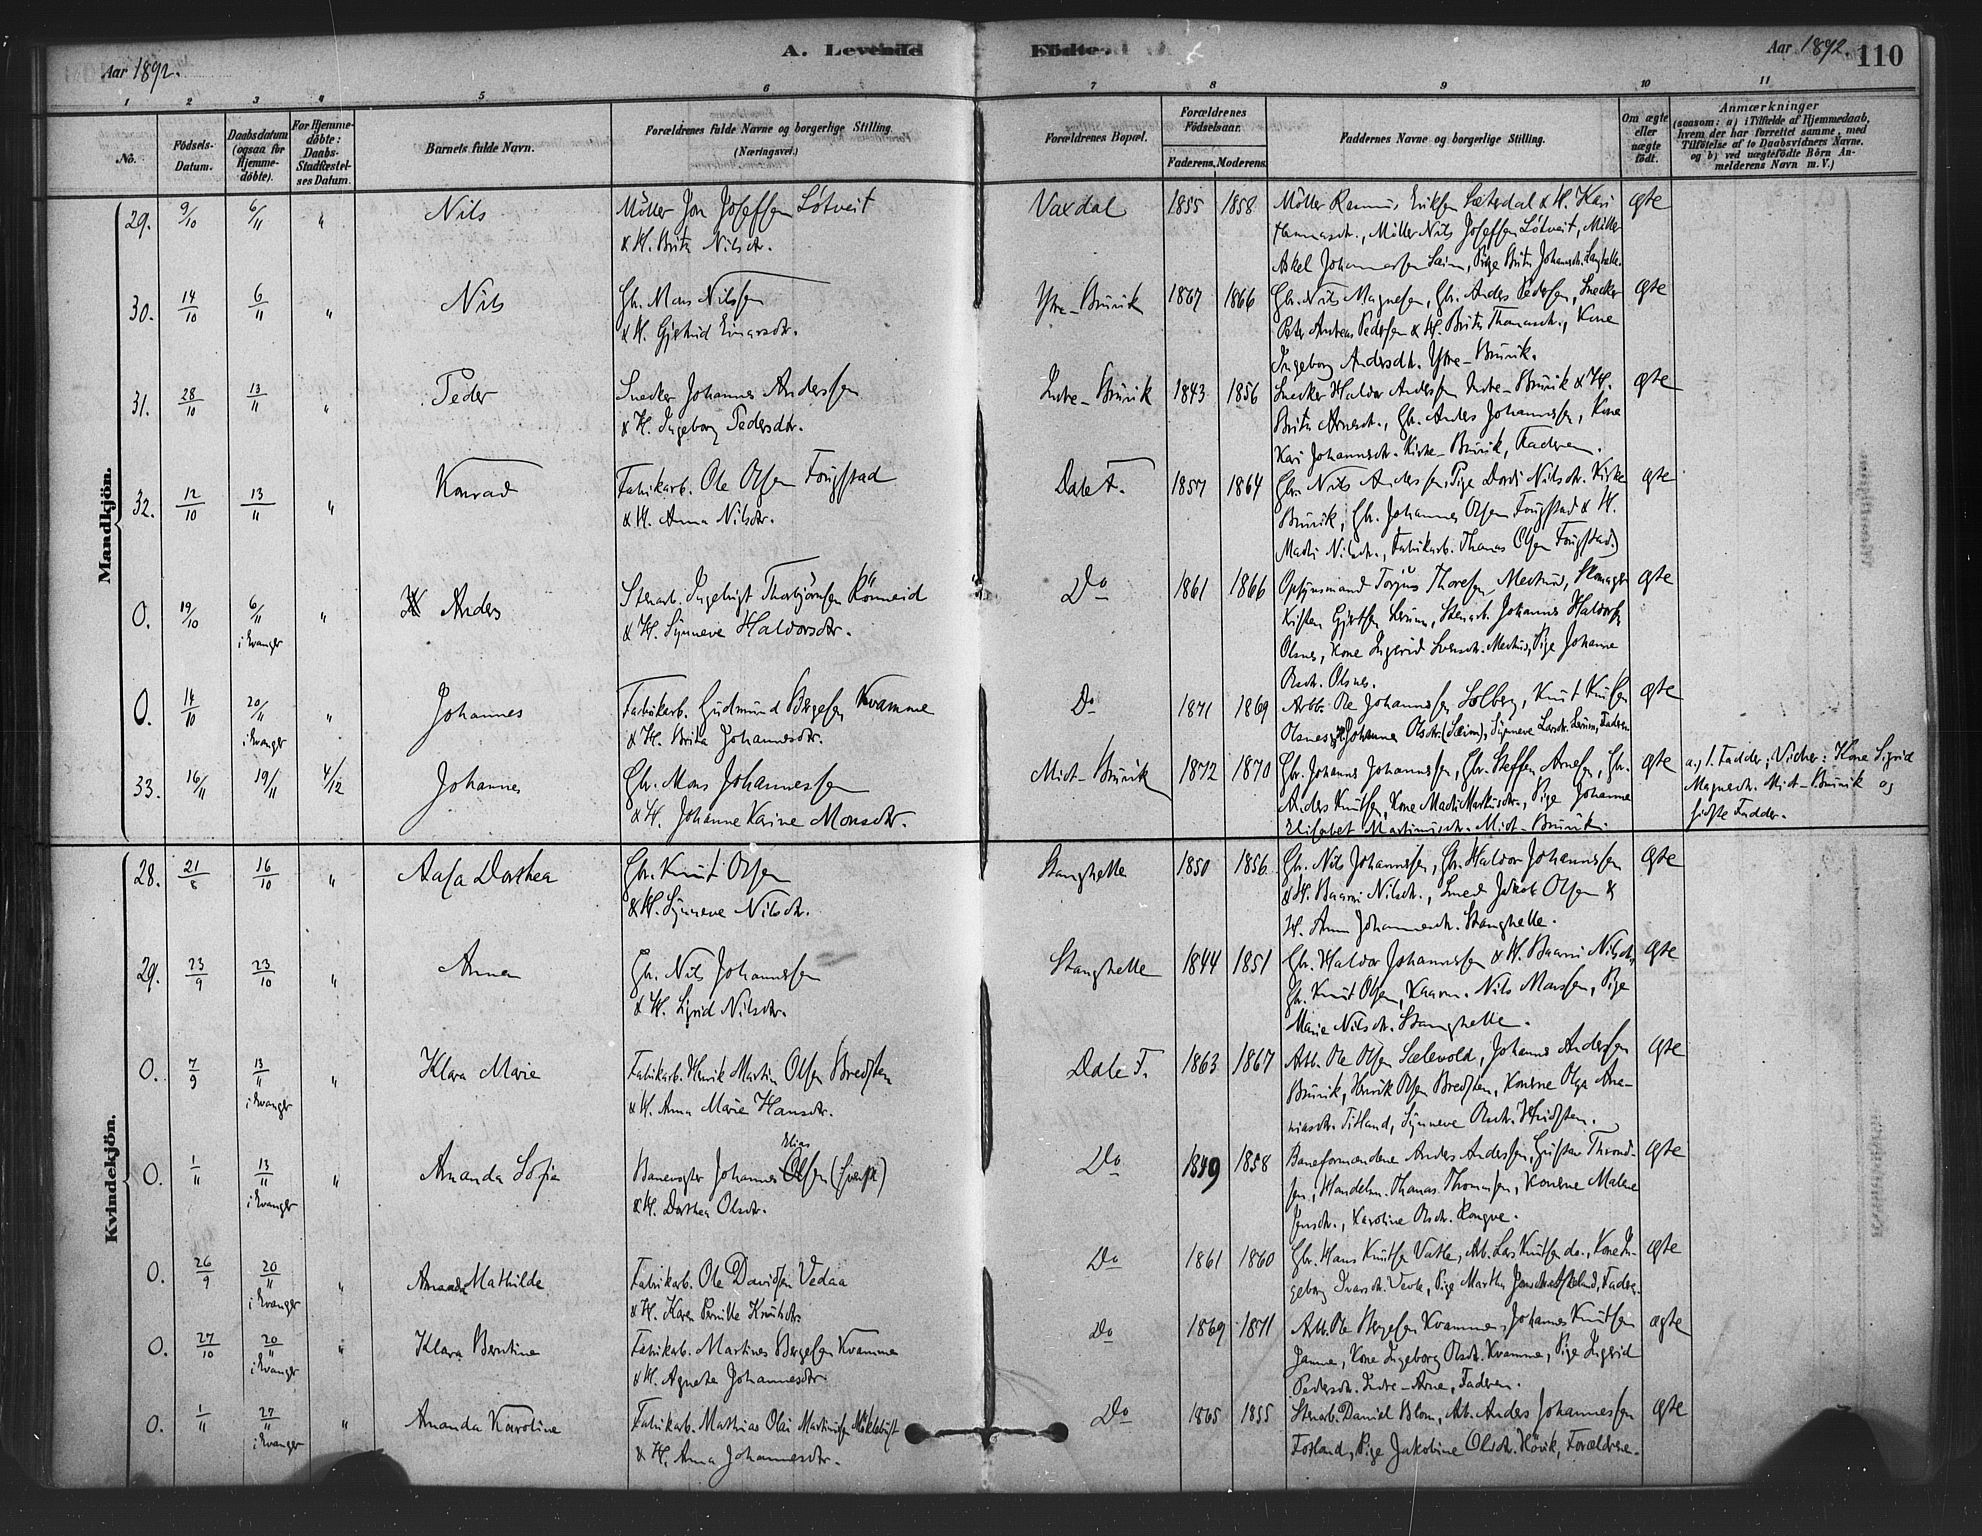 Aar 1892.
A. Levende
Födte.
Aar 1892. 110
1 2 3 4 5 6 7 8 9 10 11
No.
Födsels-Datum.
Daabsdatum (ogsaa for Hjemme-döbte).
For Hjemme-döbte: Daabs-Stadfæstel-ses Datum.
Barnets fulde Navn.
Forældrenes fulde Navne og borgerlige Stilling.
(Næringsvei.)
Forældrenes Bopæl.
Forældrenes Födselsaar.
Faderens. Moderens.
Faddernes Navne og borgerlige Stilling.
Om ægte eller uægte födt.
Anmærkninger
(saasom: a) i Tilfælde af Hjemmedaab, hvem der har forrettet samme, med Tilföielse af to Daabsvidners Navne. og b) ved uægtefödte Börn An-melderens Navn m. V.)
Mandkjön.
29. 9/10 6/11 " Nils
Möller Jon Joseffsen Lötveit
& H. Brita Nilsdtr.
Vaxdal 1855 1858
Möller Rasmus Eriksen Sæterdal & H. Kari
Möller Nils Joseffsen Lötveit, Möller
Askel Johannessen Seim, Pige Brita Johannsdtr.
ægte
30. 14/10 6/11 " Nils
Gbr. Mons Nilssen
& H. Gjertrud Einarsdtr.
Ytre-Bruvik 1867 1866
Gbr. Nils Magnesen, Gbr. Anders Pedersen, Snecker
Peter Andreas Pedersen & H. Brita Thomasdtr., Kone
Ingeborg Andersdtr. Ytre-Bruvik.
ægte
31. 28/10 13/11 " Peder
Snecker Johannes Anderssen
& H. Ingeborg Pedersdtr.
Indre-Bruvik 1843 1856
Snecker Haldor Anderssen Indre-Bruvik & H.
Brita Arnesdtr., Gbr. Anders Johannessen, Kone
Kari Johannsdtr. Kirke-Bruvik, Faderen.
ægte
32. 12/10 13/11 " Konrad
Fabrikarb. Ole Olsen Fougstad
& H. Anna Nilsdtr.
Dale F. 1857 1864
Gbr. Nils Anderssen, Pige Dordi Nilsdtr. Kirke
Bruvik, Gbr. Johannes Olsen Fougstad & H.
Marthi Nilsdtr., Fabrikarb. Thomas Olsen Fougstad.
ægte
0. 19/10 6/11 i Evanger " Anders
Stenarb. Ingebrigt Thorbjörnsen Rönneid
& H. Synneve Haldorsdtr.
Do 1861 1866
Opsynsmand Torjus Thoresen Medhus, Skomager
Kristen Gjertsen Lerum, Stenarb. Johannes Haldorsen
Olsnes, Kone Ingerid Svensdtr. Medhus, Pige Johanne
Olsdtr. Olsnes.
ægte
0. 14/10 20/11 i Evanger " Johannes
Fabrikarb. Gudmund Bergesen Kvamme
& H. Brita Johannesdtr.
Do 1871 1869
Arbb. Ole Johannessen Solberg, Knut Knutsen
Olsnes, Johanna Olsdtr. (Seim), Synneve Larsdtr. Lerum, Faderen.
ægte
33. 16/11 19/11 4/12 Johannes
Gbr. Mons Johannessen
& H. Johanne Karine Monsdtr.
Midt-Bruvik 1872 1870
Gbr. Johannes Johannessen, Gbr. Steffen Arnesen, Gbr.
Anders Knutsen, Kone Marthi Markusdtr., Pige Johanne
Elisabet Martinusdtr. Midt-Bruvik.
ægte
a.) 1. Fadder; Vidner: Kone Sigrid
Magnesdtr. Midt-Bruvik og
sidste Fadder.
Kvindekjön.
28. 21/8 16/10 " Aasa Dorthea
Gbr. Knut Olsen
& H. Synneve Nilsdtr.
Stanghelle 1850 1856
Gbr. Nils Johannessen, Gbr. Haldor Johannessen
& H. Baarni Nilsdtr., Smed Jakob Olsen &
H. Anna Johannesdtr. Stanghelle.
ægte
29. 23/9 23/10 " Anna
Gbr. Nils Johannessen
& H. Sigrid Nilsdtr.
Stanghelle 1844 1851
Gbr. Haldor Johannessen & H. Baarni Nilsdtr,
Gbr. Knut Olsen, Kaarm. Nils Monssen, Pige
Marie Nilsdtr. Stanghelle.
ægte
0. 7/9 13/11 i Evanger " Klara Marie
Fabrikarb. Henrik Martin Olsen Bredsten
& H. Anna Marie Hansdtr.
Dale F. 1863 1867
Arb. Ole Olsen Sælevold, Johannes Anderssen
Bruvik, Henrik Olsen Bredsten, Konerne Olga Ana-
niasdtr. Titland, Synneve Olsdtr.
ægte
0. 1/11 13/11 i Evanger " Amanda Sofia
Banevogter Johannes Elias Olsen (svensk)
& H. Dorthea Olsdtr.
Do 1849 1858
Baneformændene Anders Anderssen, Gustav Thrond-
sen, Handelm. Thomas Thomassen, Konerne Malene
Jensdtr., Karoline Olsdtr. Rongve.
ægte
0. 26/9 20/11 i Evanger " Amanda Mathilde
Fabrikarb. Ole Davidsen Vedaa
& H. Karen Pernille Knutsdtr.
Do 1861 1860
Gbr. Hans Knutsen Vatle, Arb. Lars Knutsen do., Kone In-
geborg Ivarsdtr. Vatle, Pige Martha Jensdtr., Fadren.
ægte
0. 27/10 20/11 i Evanger " Klara Berntine
Fabrikarb. Martines Bergesen Kvamme
& H. Agneta Johannesdtr.
Do 1869 1871
Arb. Ole Bergesen Kvamme, Johannes Knutsen
Jamne, Kone Ingeborg Olsdtr. Kvamme, Pige Ingerid
Pedersdtr. Indre-Arne, Faderen.
ægte
0. 1/11 27/11 i Evanger " Amanda Karoline
Fabrikarb. Mathias Olai Martinusen Myklebust
& H. Anna Johannesdtr.
Do 1865 1855
Stenarb. Daniel Blom, Arb. Anders Johannessen
Fosland, Pige Jakobine Olsdtr. Hövik, Forældrene.
ægte